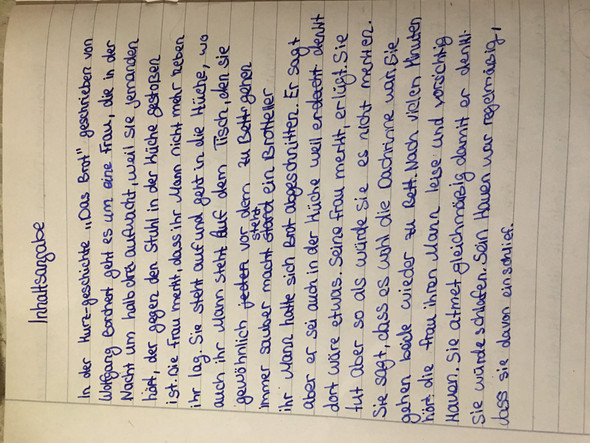 Inhaltsangabe
In der Kurz-geschichte „Das Brot" geschrieben von
Wolfgang Borchert geht es um eine Frau, die in der
Nacht um halb drei aufwacht, weil sie jemanden
hört, der gegen den Stuhl in der Küche gestoßen
ist. Die Frau merkt, dass ihr Mann nicht mehr neben
ihr lag. Sie steht auf und geht in die Küche, wo
auch ihr Mann steht. Auf dem Tisch, den sie
gewöhnlich jeden vor dem zu Bett gehen
immer sauber macht steht ein Brotteller
ihr Mann hatte sich Brot abgeschnitten. Er sagt
aber er sei auch in der Küche weil er denkt
dort wäre etwas. Seine Frau merkt, er lügt. Sie
tut aber so als würde Sie es nicht merken.
Sie sagt, dass es wohl die Dachrinne war. Sie
gehen beide wieder zu Bett. Nach vielen Minuten
hört die Frau ihren Mann leise und vorsichtig
Kauen. Sie atmet gleichmäßig damit er denkt
Sie würde schlafen. Sein Kauen war regelmäsig,
dass sie davon einschlief.